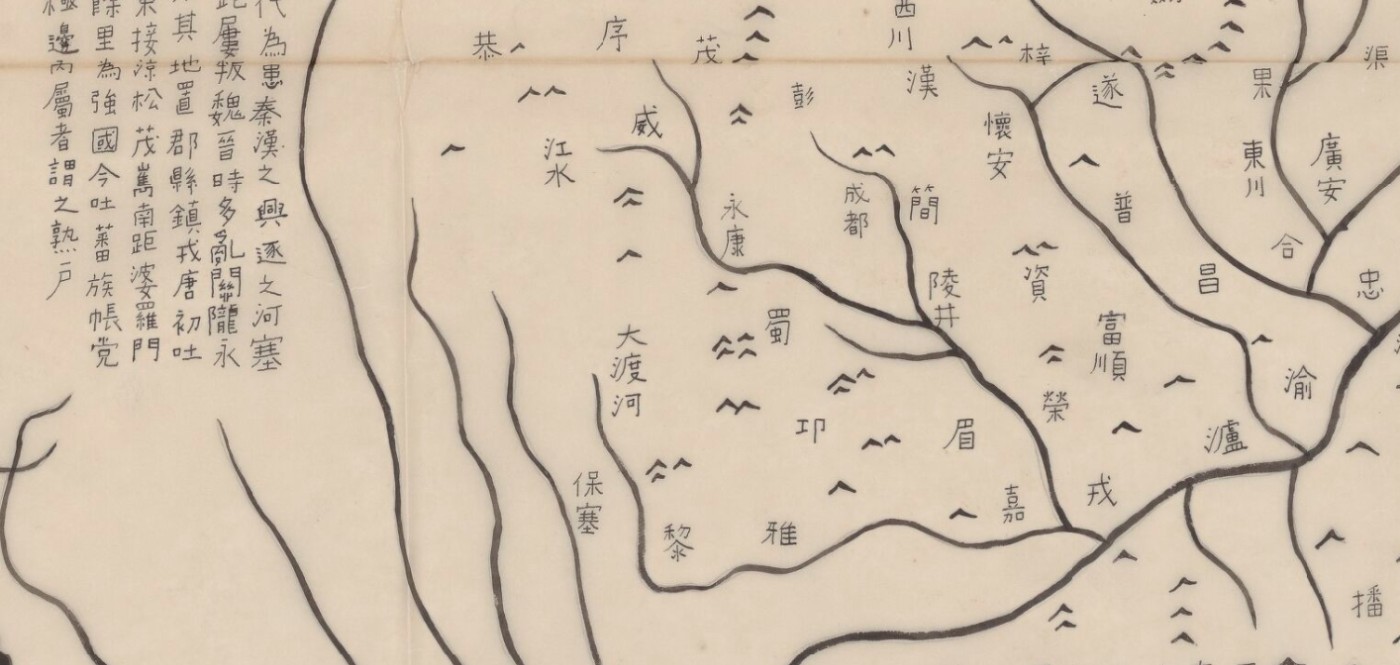 代為患秦漢之興逐之河塞
屢叛魏晉時多亂關隴永
其地置郡縣鎮戎唐初吐
東接涼松茂嶲南距婆羅門
餘里為強國今吐蕃族帳党
極邊內屬者謂之熟戶
恭
序
茂
西川
漢
梓
遂
果
渠
彭
威
江水
懷安
東川
廣安
成都
簡
永康
普
合
昌
忠
資
陵井
蜀
大渡河
富順
渝
榮
卭
眉
瀘
保塞
嘉
戎
黎
雅
播